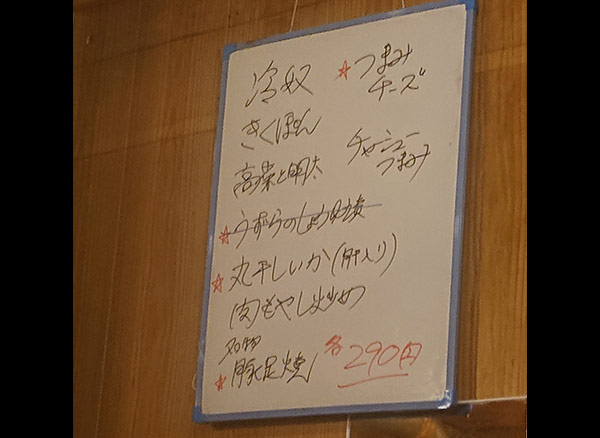 冷奴
きくぽん
高菜と明太
☆うずらのしょう油漬
☆丸干しいか(肝入り)
肉もやし炒め
名物
☆豚足焼
☆つまみ
チーズ
チャーシュー
つまみ
各290円